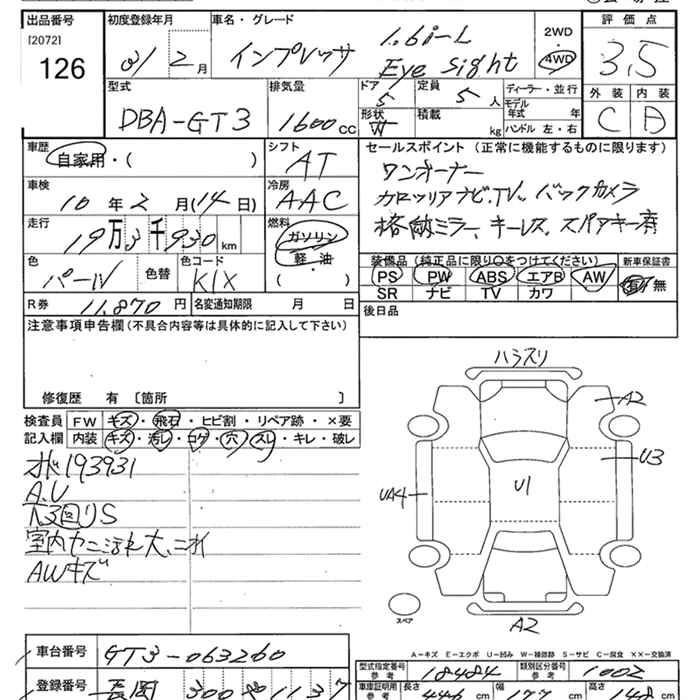 出品番号
[2072]
126
初度登録年月
31 2月
車名・グレード
インプレッサ 1.6i-L
Eye sight
2WD
4WD
評価点
3.5
型式
DBA-GT3
排気量
1600 cc
ドア
5
定員
5人
形状
W
積載
kg
ディーラー・並行
モデル年式 年
ハンドル 左・右
外装 内装
C D
車歴
自家用・( )
シフト
AT
セールスポイント (正常に機能するものに限ります)
ワンオーナー
カロッツリアナビ.TV. バックカメラ
格納ミラー、キーレス、スペアキー有
車検
10年2月(14日)
冷房
AAC
走行
19万3千930 km
燃料
ガソリン
軽・油
( )
色
パール
色替
色コード
K1X
装備品 (純正品に限り○をつけてください)
PS PW ABS エアB AW
SR ナビ TV カワ
新車保証書
有・無
R券 11,870円
名変通知期限 月 日
後日品
注意事項申告欄 (不具合内容等は具体的に記入して下さい)
修復歴 有 [箇所 ]
検査員記入欄
FW キズ・飛石・ヒビ割・リペア跡・×要
内装 キズ・汚レ・コゲ・穴・スレ・キレ・破レ
オド193931
A.U
室内ヤニ汚れ大、ニオイ
AWキズ
ハラスリ
A2
U3
UA4
U1
A2
スペア
A-キズ E-エクボ U-凹み W-補修跡 S-サビ C-腐食 ××-交換済
車台番号
GT3-063260
登録番号
長岡 300 1137
型式指定番号
参考
18484
類別区分番号
参考
1002
車庫証明用
参考
長さ 446 cm
幅 177 cm
高さ 148 cm